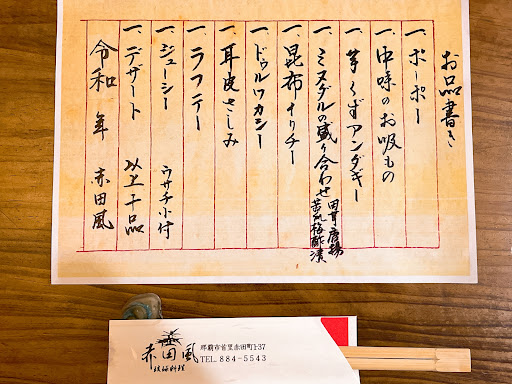 お品書き
一、ポーポー
一、中味のお吸もの
一、芋くずアンダギー
一、ミヌダルの盛り合わせ 田芋唐揚 苦瓜梅酢漬
一、昆布イリチー
一、ドゥルワカシー
一、耳皮さしみ
一、ラフテー
一、ジューシー ウサチ小付
一、デザート 以上十品
令和 年 赤田風
赤田風
琉球料理
那覇市首里赤田町1-37
TEL. 884-5543